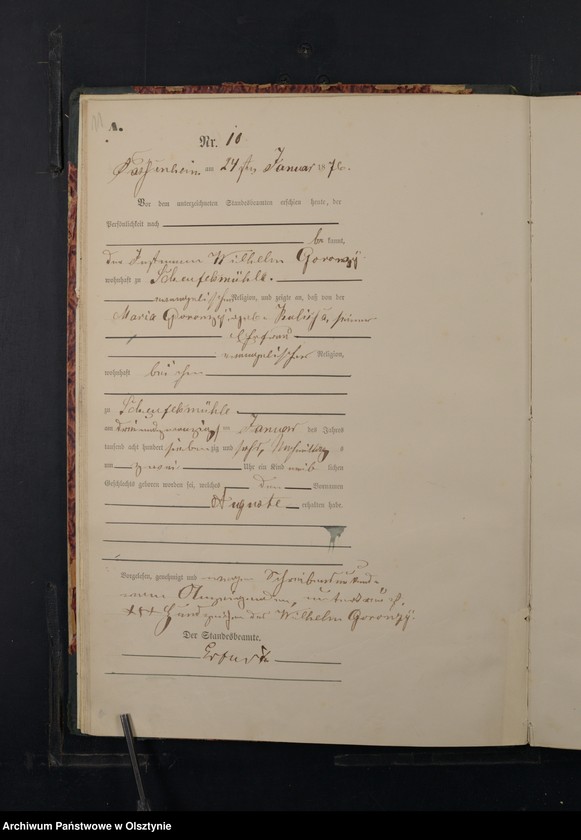 A.
Nr. 10
Passenheim am 24ten Januar 1876.
Vor dem unterzeichneten Standesbeamten erschien heute, der
Persönlichkeit nach
be kannt,
der Wilhelm Goronzÿ
wohnhaft zu Scheufelsmühle.
evangelischer Religion, und zeigte an, daß von der
Maria Goronzÿ geb. Kalissa, seiner
Ehefrau
evangelischer Religion,
wohnhaft bei ihm
zu Scheufelsmühle
am Januar des Jahres
tausend acht hundert siebenzig und sechs, Nachmittags
um zwei Uhr ein Kind weib lichen
Geschlechts geboren worden sei, welches den Vornamen
Auguste erhalten habe.
Vorgelesen, genehmigt und wegen
+++ Handzeichen des Wilhelm Goronzÿ.
Der Standesbeamte.
Archiwum Państwowe w Olsztynie